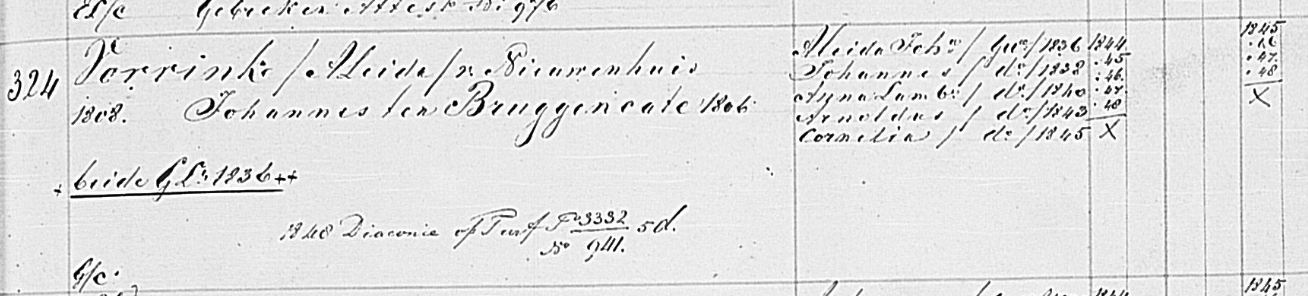 Gebreken Attest N: 976
324 Vorrink / Aleida / v. Nieuwenhuis
1808. Johannes ten Bruggencate 1806
+ beide G L: 1836 ++
1848 Diaconie of Turf F: 3332 5d.
No 941.
G/c.
Aleida Joh: / Gw: / 1836 1844
Johannes / do / 1838 . 45
Anna Lamb: / do / 1840 . 46
Arnoldus / do / 1843 . 47
Cornelia / do / 1845 . 48
X
1845
. 46
. 47
. 48
X
1845